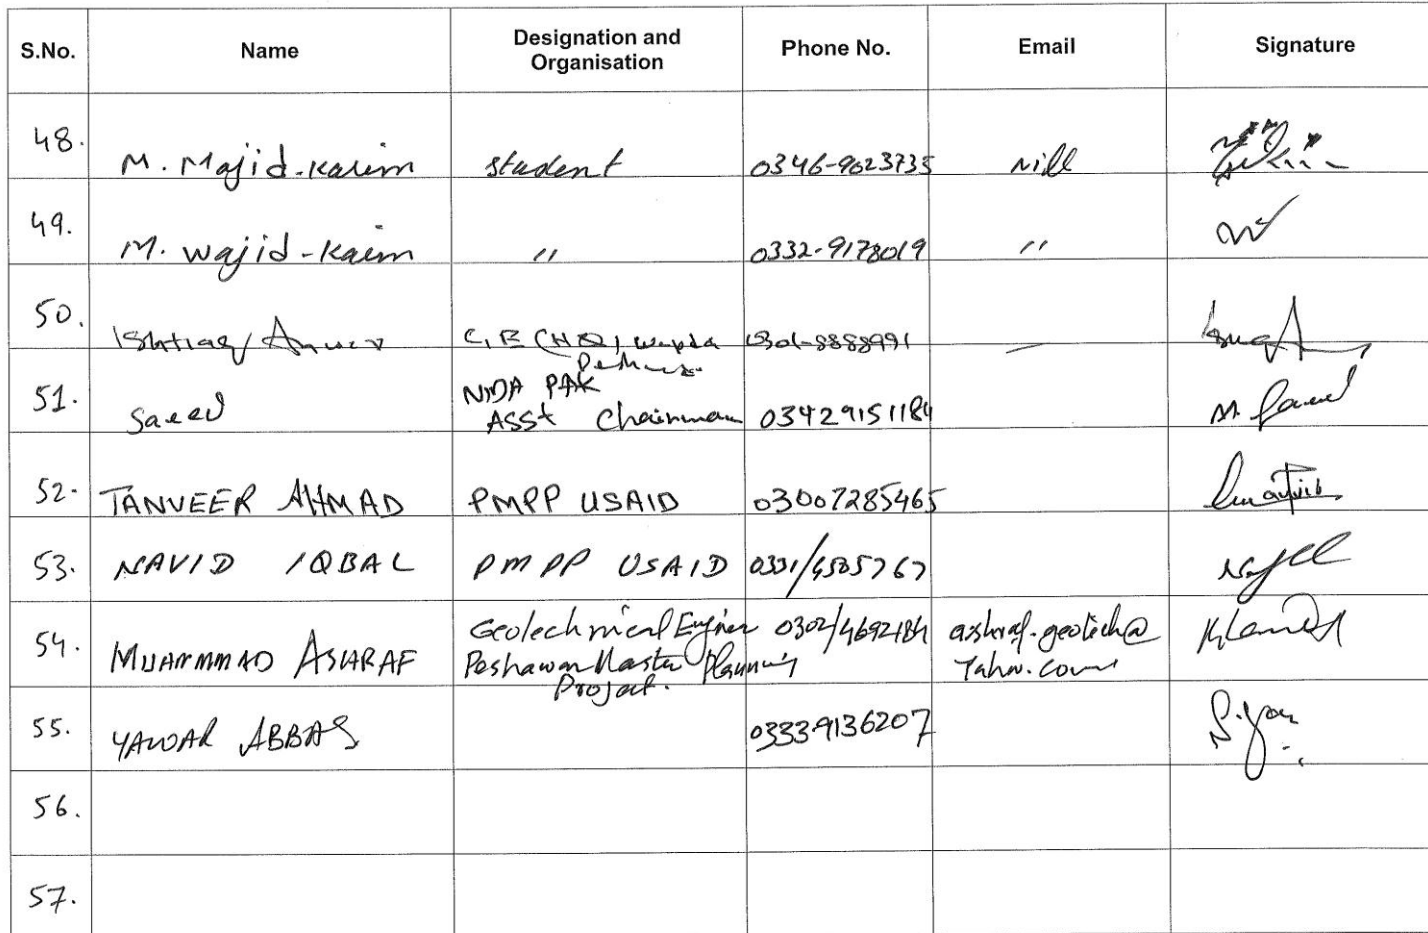 S.No. Name Designation and Organisation Phone No. Email Signature
48. M. Majid-Karim student 0346-9023735 Nill
49. M. Wajid-Kaim " 0332-9178019 "
50. Ishtiaq Anwar C.E (HQ) Wapda 0301-8888991 —
51. Saeed NIDA PAK
ASSt Chairman 03429151184 M. Saeed
52. TANVEER AHMAD PMPP USAID 03007285465
53. NAVID IQBAL PMPP USAID 0331/4505767
54. MUHAMMAD ASHARAF Geotechnical Engineer 0302/4692184 ashraf.geotech@
Peshawar Master Planning Yahoo.com
Project.
55. YAWAR ABBAS 03339136207
56.
57.